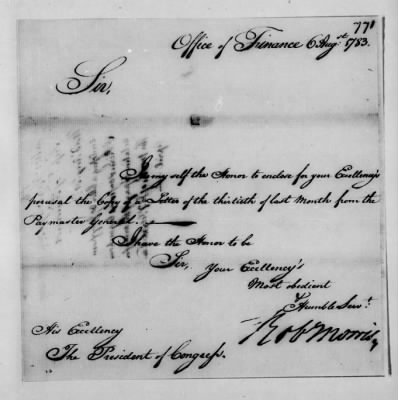 771
Office of Finance 6 Augst. 1783.
Sir,
I my self the Honor to enclose for your Excellency's
perusal the Copy of a Letter of the thirtieth of last Month from the
Paymaster General.
I have the Honor to be
Sir, Your Excellency's
Most obedient
& Humble Servt.
Rob Morris
His Excellency
The President of Congress.